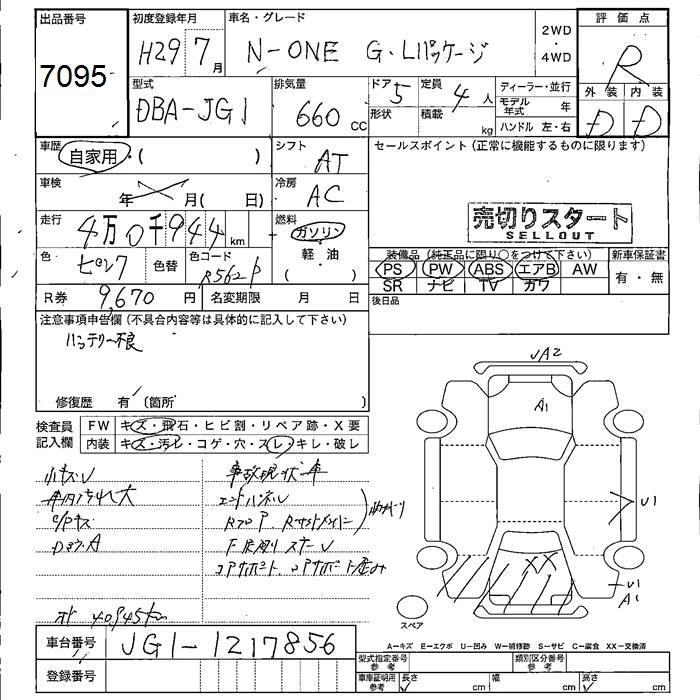 出品番号 初度登録年月 車名・グレード 2WD・4WD 評価点
7095 H29 7月 N-ONE G・Lパッケージ R
型式 排気量 ドア 5 定員 4人 ディーラー・並行 外装 内装
DBA-JG1 660cc 形状 積載 kg モデル年式 年 D D
ハンドル 左・右
車歴 自家用・( ) シフト AT セールスポイント (正常に機能するものに限ります)
車検 年 月( 日) 冷房 AC
走行 4万0千944km 燃料 ガソリン 軽・油 ( )
売切りスタート
SELLOUT
色・ ピンク 色替 色コード R562P
装備品 (純正品に限り○をつけて下さい) 新車保証書
PS PW ABS エアB AW 有・無
SR ナビ TV カワ
R券 9,670円 名変期限 月 日 後日品
注意事項申告欄 (不具合内容等は具体的に記入して下さい)
バッテリー不良
修復歴 有 (箇所 )
検査員記入欄 FW キズ・飛石・ヒビ割・リペア跡・X要
内装 キズ・汚レ・コゲ・穴・スレ・キレ・破レ
小キズU 事故現状車
車内汚れ大 エンドパネル
R フロア
コアサポート
メーター 40945km
JA2
A1
U1
XX
U1
A1
スペア
A―キズ E―エクボ U―凹み W―補修跡 S―サビ C―腐食 XX―交換済
車台番号 JG1-1217856
登録番号
型式指定番号 参考 類別区分番号 参考
車庫証明用 参考 長さ cm 幅 cm 高さ cm